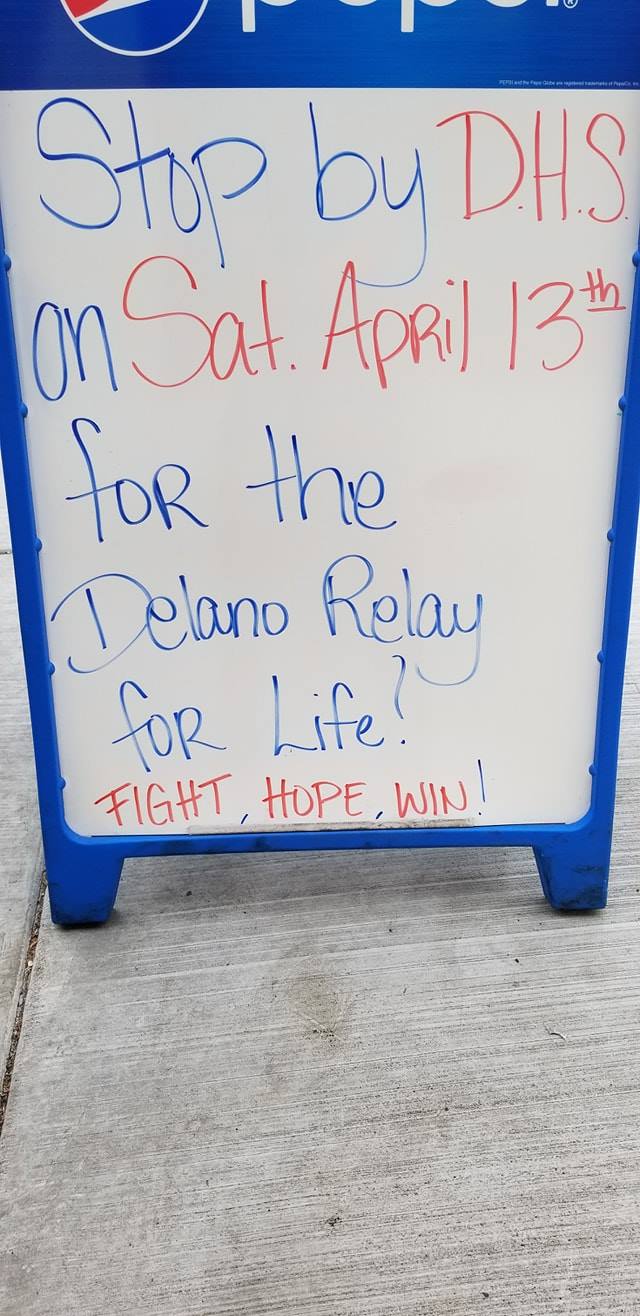 pepsi®
PEPSI and the Pepsi Globe are registered trademarks of PepsiCo, Inc.
Stop by D.H.S.
on Sat. April 13th
for the
Delano Relay
for Life!
FIGHT, HOPE, WIN!